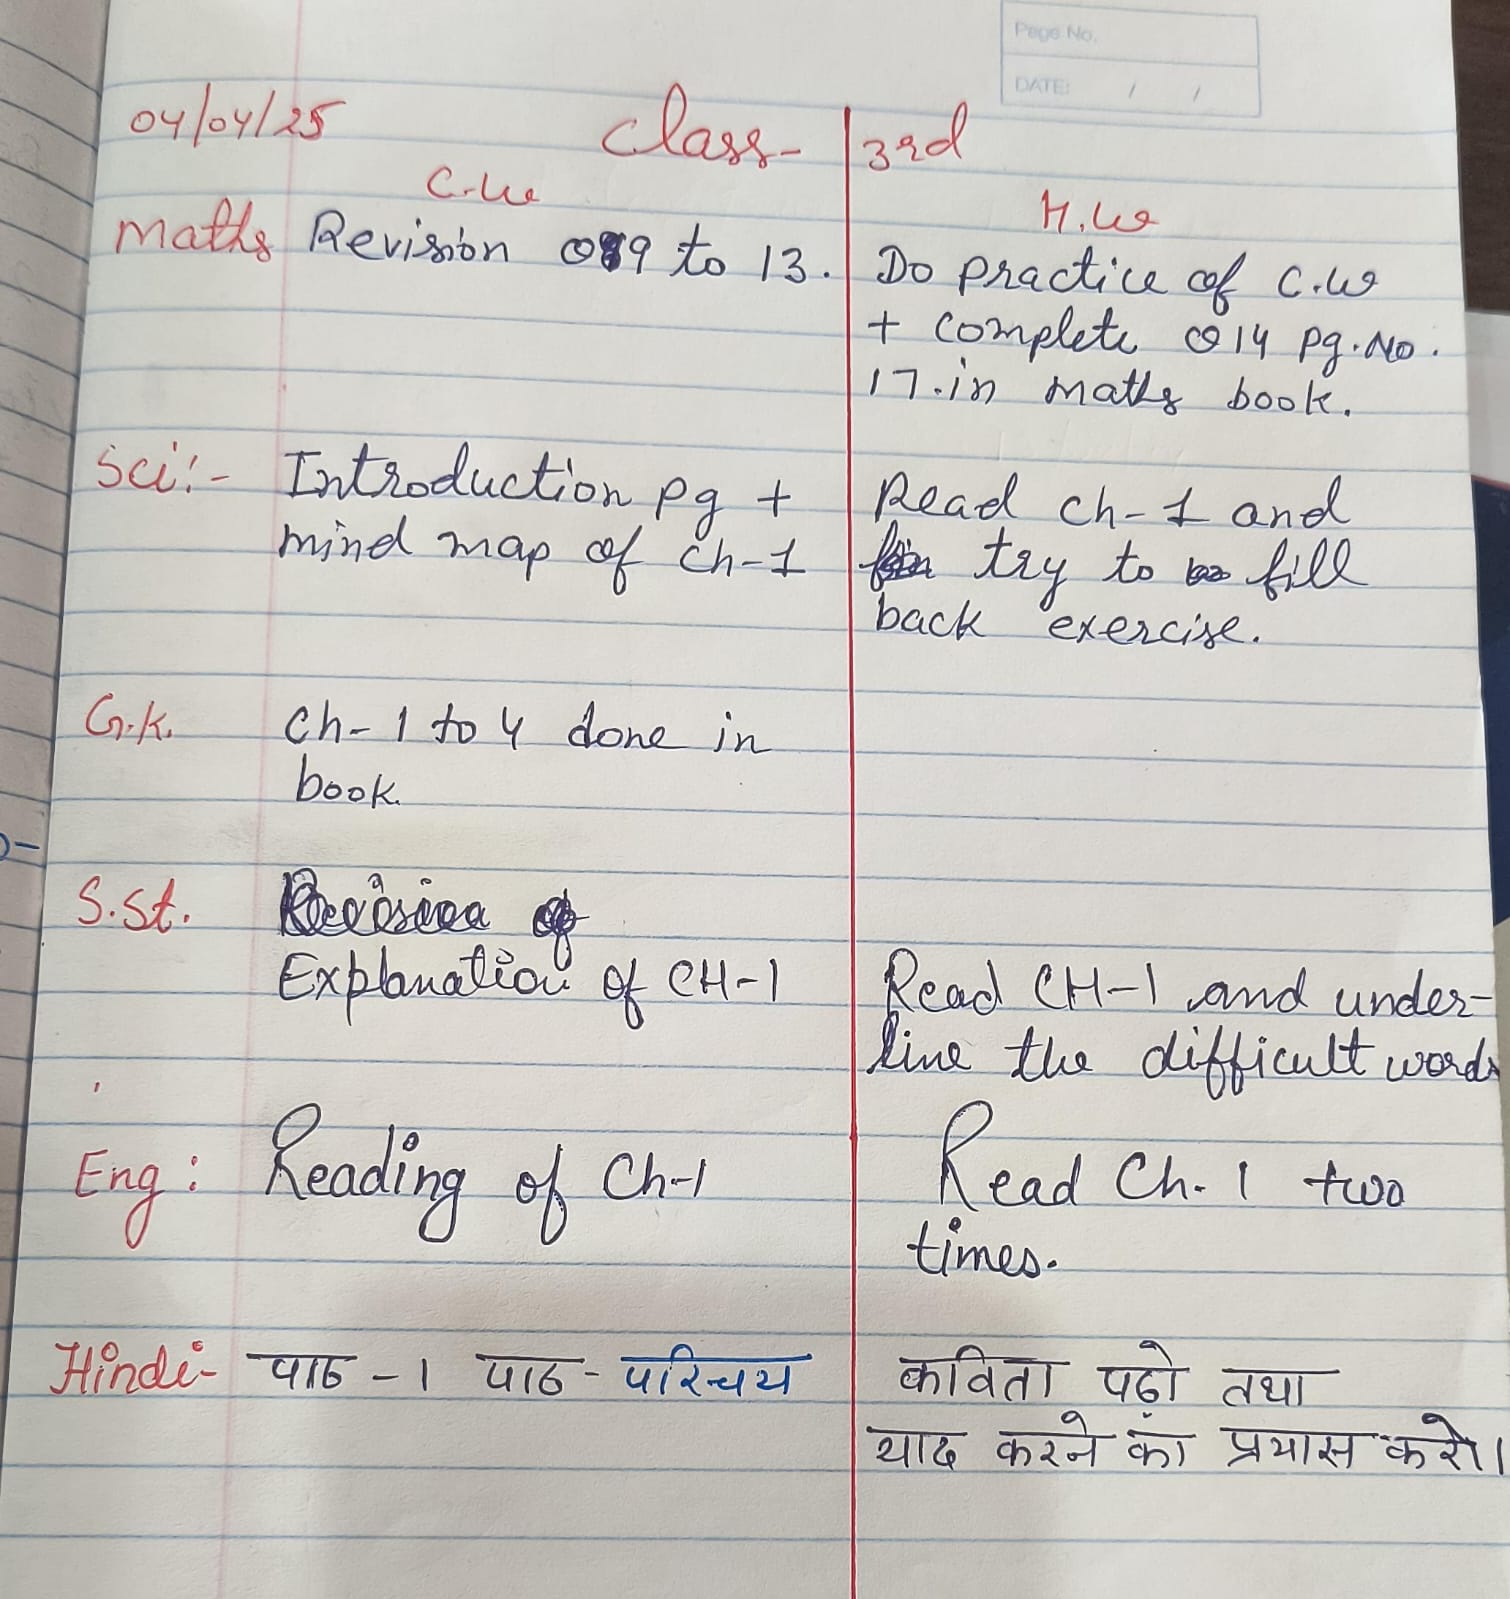 Page No.
DATE: / /
04/04/25 Class- 3rd
C.W H.W
Maths Revision Q9 to 13. Do practice of C.W
+ complete Q14 pg.No.
17.in maths book.
Sci:- Introduction pg + Read ch-1 and
mind map of ch-1 try to fill
back exercise.
G.K. Ch-1 to 4 done in
book.
S.St.
Explanation of CH-1 Read CH-1 and under-
line the difficult words
Eng: Reading of Ch-1 Read Ch.1 two
times.
Hindi- पाठ-1 पाठ-परिचय कविता पढ़ो तथा
याद करने का प्रयास करो।